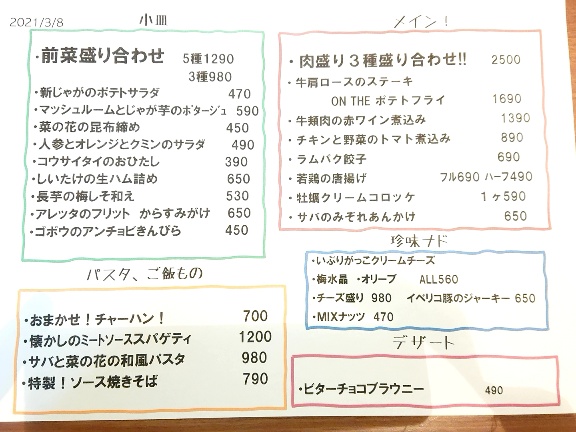 2021/3/8
小皿
・前菜盛り合わせ 5種1290
3種980
・新じゃがのポテトサラダ 470
・マッシュルームとじゃが芋のポタージュ 590
・菜の花の昆布締め 450
・人参とオレンジとクミンのサラダ 490
・コウサイタイのおひたし 390
・しいたけの生ハム詰め 650
・長芋の梅しそ和え 530
・アレッタのフリット からすみがけ 650
・ゴボウのアンチョビきんぴら 450
パスタ、ご飯もの
・おまかせ！チャーハン！ 700
・懐かしのミートソーススパゲティ 1200
・サバと菜の花の和風パスタ 980
・特製！ソース焼きそば 790
メイン！
・肉盛り３種盛り合わせ!! 2500
・牛肩ロースのステーキ
ON THE ポテトフライ 1690
・牛頬肉の赤ワイン煮込み 1390
・チキンと野菜のトマト煮込み 890
・ラムパク餃子 690
・若鶏の唐揚げ フル690 ハーフ490
・牡蠣クリームコロッケ １ヶ590
・サバのみぞれあんかけ 650
珍味ナド
・いぶりがっこクリームチーズ
・梅水晶 ・オリーブ ALL560
・チーズ盛り 980 イベリコ豚のジャーキー 650
・MIXナッツ 470
デザート
・ビターチョコブラウニー 490